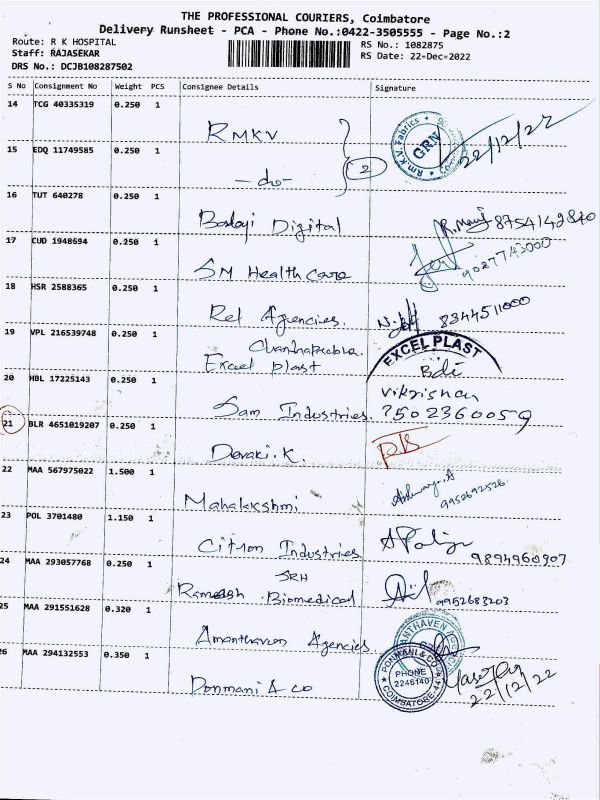 THE PROFESSIONAL COURIERS, Coimbatore
Delivery Runsheet - PCA - Phone No.:0422-3505555 - Page No.:2
Route: R K HOSPITAL
Staff: RAJASEKAR
DRS No.: DCJB108287502
RS No.: 1082875
RS Date: 22-Dec-2022
S No Consignment No Weight PCS Consignee Details Signature
14 TCG 40335319 0.250 1
RMKV
Rm.K.V. Fabrics
GRN
22/12/22
15 EDQ 11749585 0.250 1
- do -
2
16 TUT 640278 0.250 1
Balaji Digital
R. 8754142840
17 CUD 1948694 0.250 1
SM Health care
9027743000
18 HSR 2588365 0.250 1
Rel Agencies.
8344511000
19 VPL 216539748 0.250 1
Chandraprabha
Excel plast
EXCEL PLAST
20 HBL 17225143 0.250 1
Sam Industries.
7502360059
21 BLR 4651019207 0.250 1
Devaki.K.
22 MAA 567975022 1.500 1
Mahalakshmi
9952692526
23 POL 3701480 1.150 1
Citron Industries
9894960907
24 MAA 293057768 0.250 1
SRH
Ramesh Biomedical
9952683203
25 MAA 291551628 0.320 1
Amanthaven Agencies
26 MAA 294132553 0.350 1
Ponmani & co
PONMANI & CO
PHONE
2246140
COIMBATORE
22/12/22